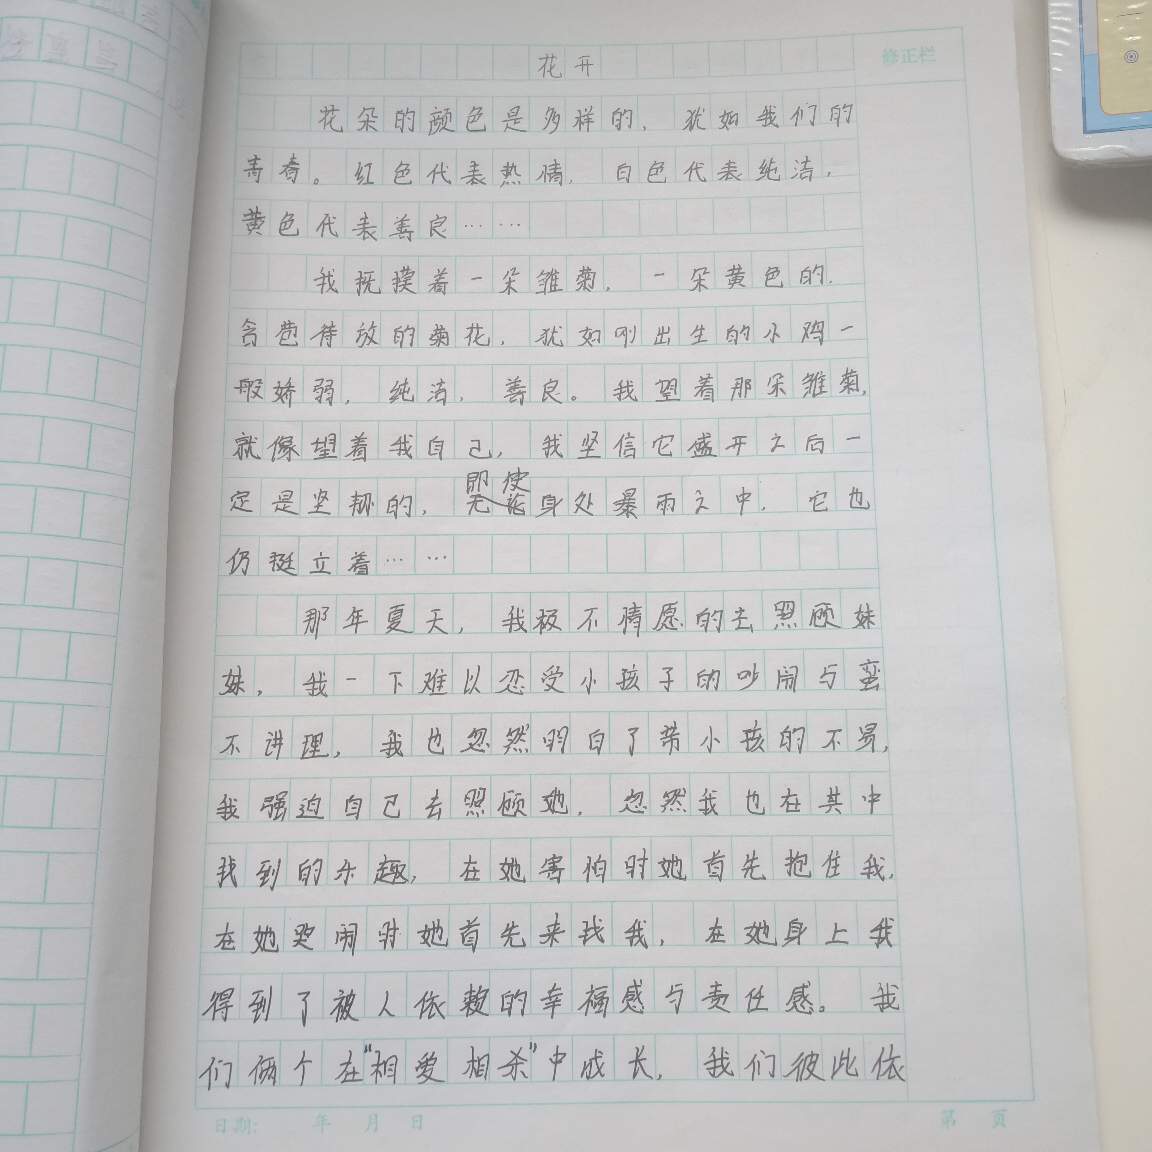 花开
修正栏
花朵的颜色是多样的，犹如我们的
青春。红色代表热情，白色代表纯洁，
黄色代表善良……
我抚摸着一朵雏菊，一朵黄色的，
含苞待放的菊花，犹如刚出生的小鸡一
般娇弱，纯洁，善良。我望着那朵雏菊，
就像望着我自己，我坚信它盛开之后一
即使
定是坚韧的，身处暴雨之中，它也
仍挺立着……
那年夏天，我极不情愿的去照顾妹
妹，我一下难以忍受小孩子的吵闹与蛮
不讲理，我也忽然明白了带小孩的不易，
我强迫自己去照顾她，忽然我也在其中
找到的乐趣，在她害怕时她首先抱住我，
在她哭闹时她首先来找我，在她身上我
得到了被人依赖的幸福感与责任感。我
们俩个在"相爱相杀"中成长，我们彼此依
日期: 年 月 日 第 页